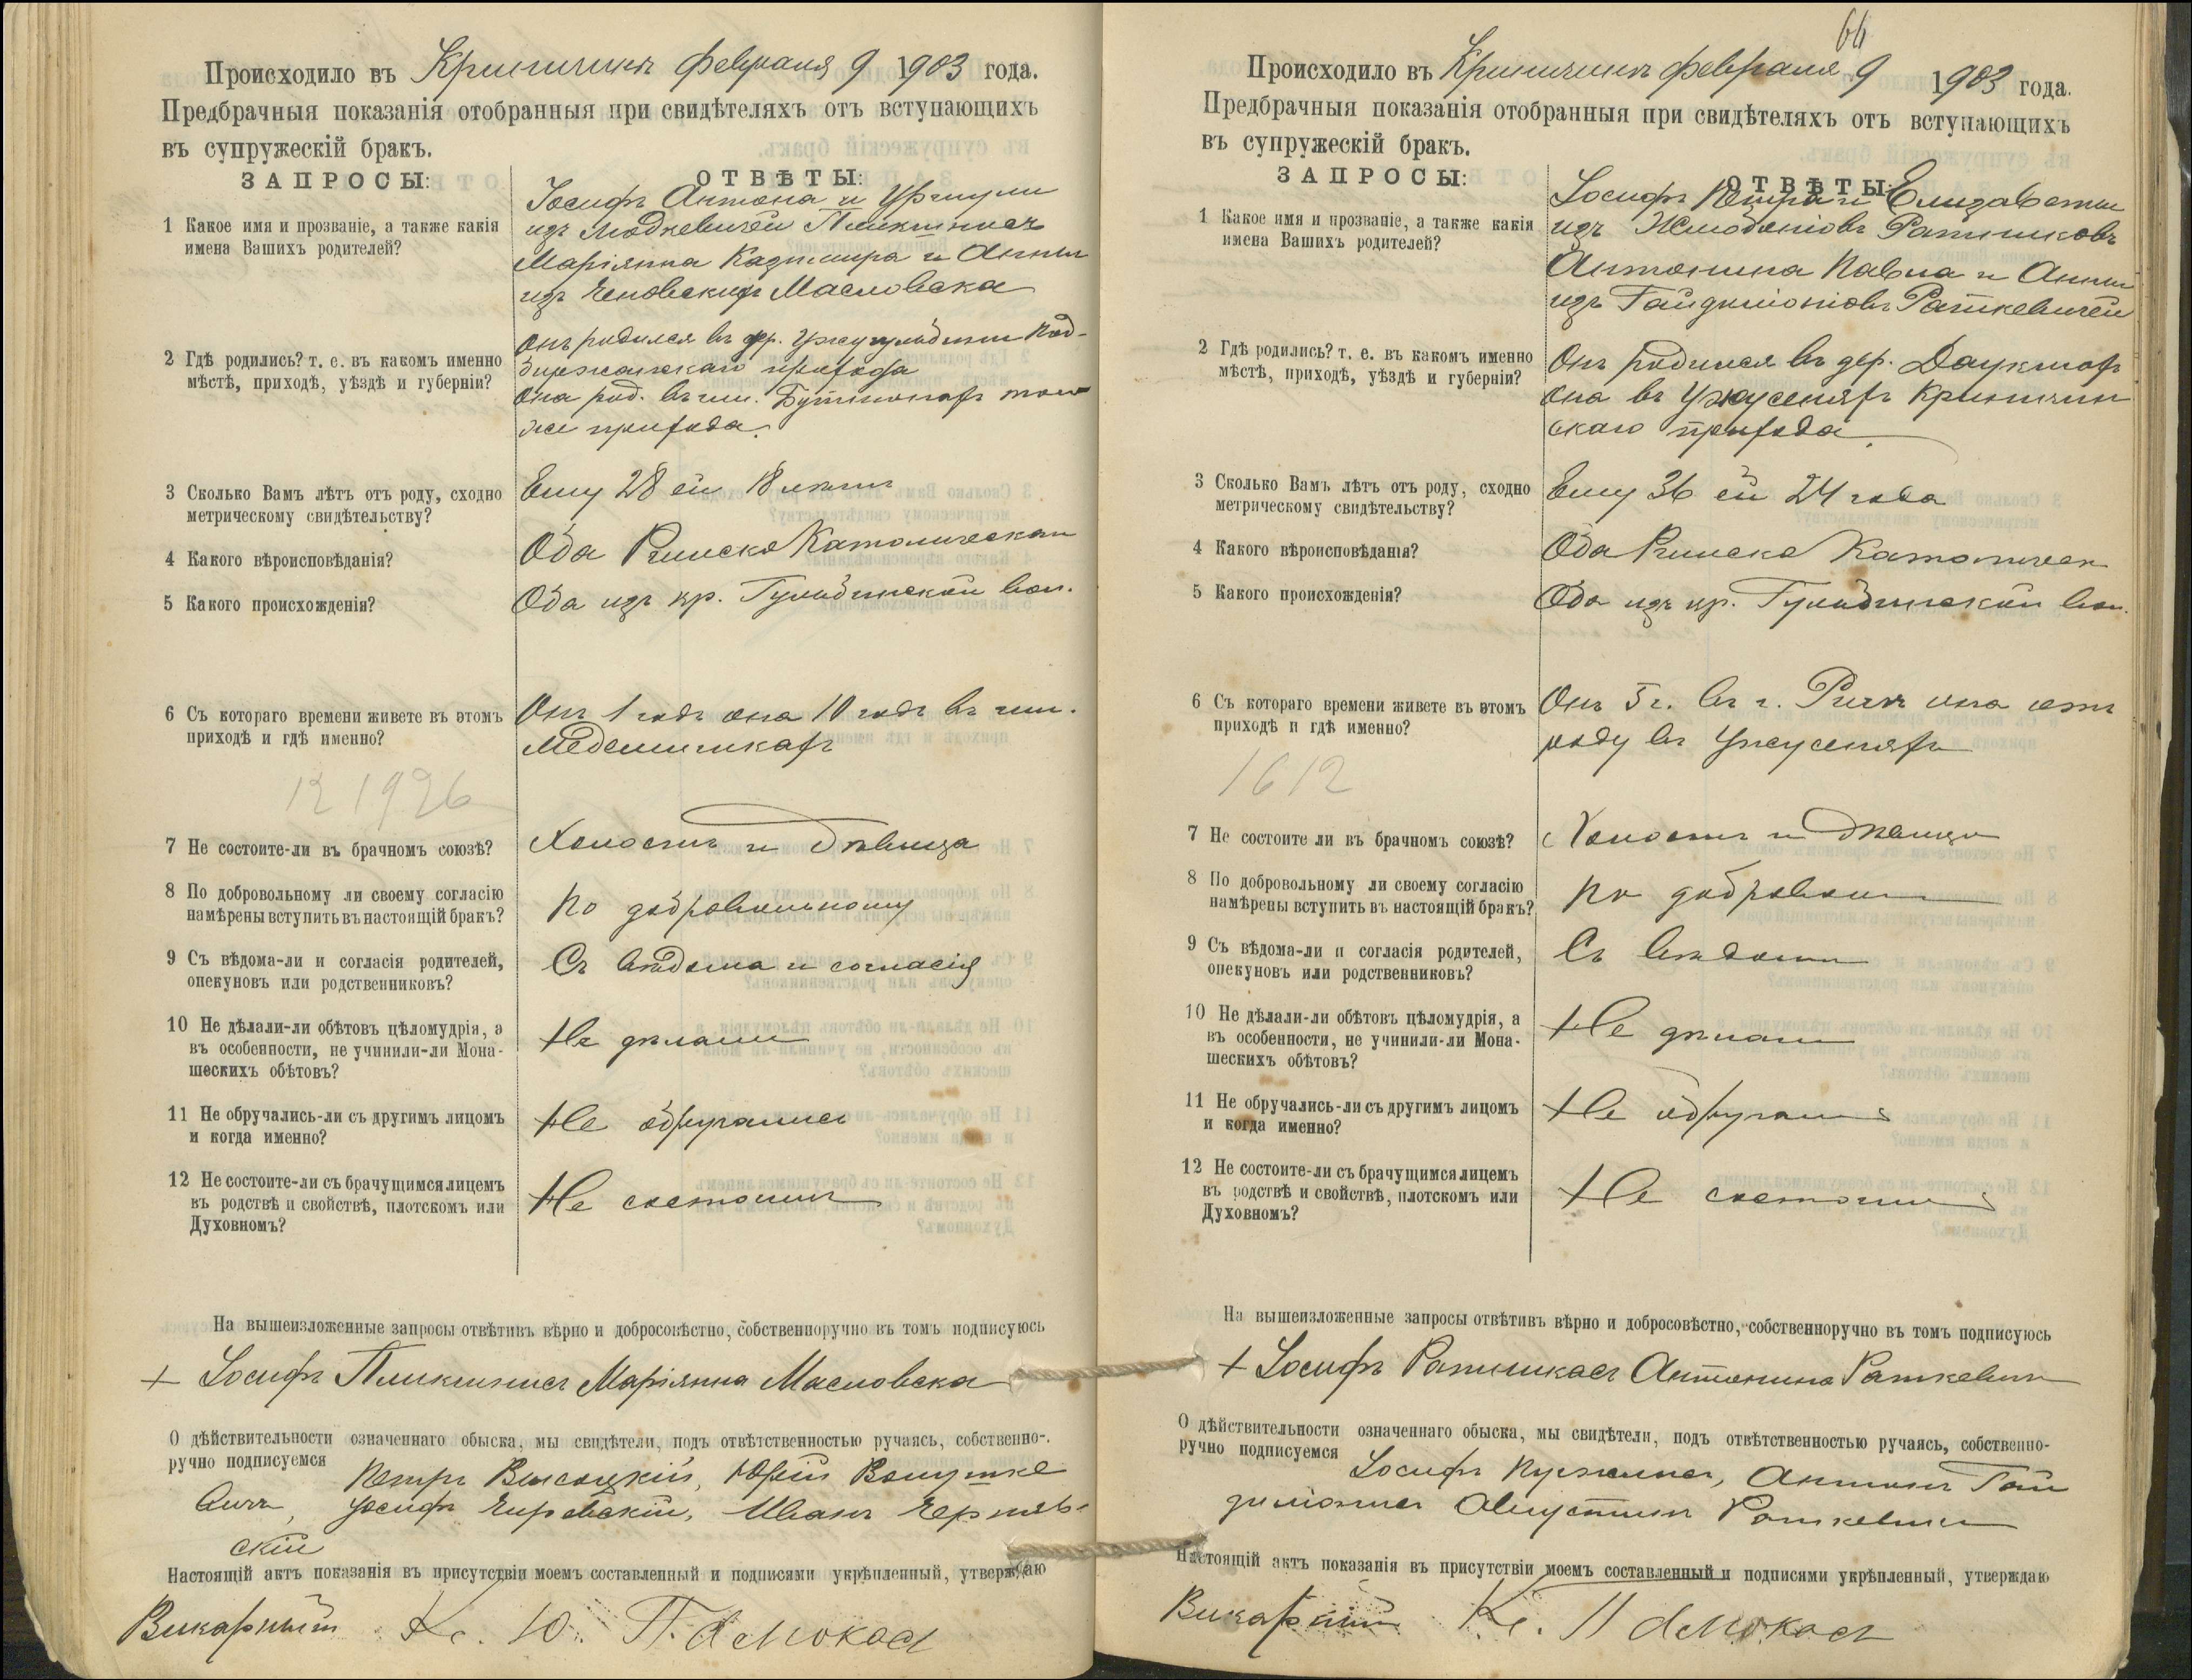 Происходило въ Криничинѣ февраля 9 1903 года.
Предбрачныя показанія отобранныя при свидѣтеляхъ отъ вступающихъ
въ супружескій бракъ.
ЗАПРОСЫ:
ОТВѢТЫ:
1 Какое имя и прозваніе, а также какія
имена Вашихъ родителей?
Іосифъ Антона и Уршули
изъ
Маріянна Казимира и Анны
изъ Масловска
2 Гдѣ родились? т. е. въ какомъ именно
мѣстѣ, приходѣ, уѣздѣ и губерніи?
Онъ родился въ др. Под-
биржанскаго прихода
Она род. въ им. того
же прихода.
3 Сколько Вамъ лѣтъ отъ роду, сходно
метрическому свидѣтельству?
Ему 28 ей 18 лѣтъ
4 Какого вѣроисповѣданія?
Оба Римско Католическаго
5 Какого происхожденія?
Оба изъ кр. Гульбинской вол.
6 Съ котораго времени живете въ этомъ
приходѣ и гдѣ именно?
Онъ 1 годъ она 10 годъ въ им.
12 1926
7 Не состоите-ли въ брачномъ союзѣ?
Холостъ и дѣвица
8 По добровольному ли своему согласію
намѣрены вступить въ настоящій бракъ?
По добровольному
9 Съ вѣдома-ли и согласія родителей,
опекуновъ или родственниковъ?
Съ вѣдома и согласія
10 Не дѣлали-ли обѣтовъ цѣломудрія, а
въ особенности, не учинили-ли Мона-
шескихъ обѣтовъ?
Не дѣлали
11 Не обручались-ли съ другимъ лицомъ
и когда именно?
Не обручались
12 Не состоите-ли съ брачущимся лицемъ
въ родствѣ и свойствѣ, плотскомъ или
Духовномъ?
Не состоимъ
На вышеизложенные запросы отвѣтивъ вѣрно и добросовѣстно, собственноручно въ томъ подписуюсь
+ Іосифъ Пликшнисъ Маріянна Масловска
О дѣйствительности означеннаго обыска, мы свидѣтели, подъ отвѣтственностью ручаясь, собственно-
ручно подписуемся Петръ Высоцкій, Юрій
Іосифъ Иванъ Черняв-
скій
Настоящій актъ показанія въ присутствіи моемъ составленный и подписями укрѣпленный, утверждаю
Викарный Кс. Ю.
66
Происходило въ Криничинѣ февраля 9 1903 года.
Предбрачныя показанія отобранныя при свидѣтеляхъ отъ вступающихъ
въ супружескій бракъ.
ЗАПРОСЫ:
ОТВѢТЫ:
1 Какое имя и прозваніе, а также какія
имена Вашихъ родителей?
Іосифъ Петра и Елизаветы
изъ
Антонина Павла и Анны
изъ Гайдиліонісовъ Раткевичей
2 Гдѣ родились? т. е. въ какомъ именно
мѣстѣ, приходѣ, уѣздѣ и губерніи?
Онъ родился въ дер.
она въ Ужусеняхъ Криничин
скаго прихода.
3 Сколько Вамъ лѣтъ отъ роду, сходно
метрическому свидѣтельству?
Ему 36 ей 24 года
4 Какого вѣроисповѣданія?
Оба Римско Католическ
5 Какого происхожденія?
Оба изъ кр. Гульбинской вол.
6 Съ котораго времени живете въ этомъ
приходѣ и гдѣ именно?
Онъ 5 г. въ г. Ригѣ она отъ
роду въ Ужусеняхъ
1612
7 Не состоите ли въ брачномъ союзѣ?
Холостъ и дѣвица
8 По добровольному ли своему согласію
намѣрены вступить въ настоящій бракъ?
По добровол
9 Съ вѣдома-ли и согласія родителей,
опекуновъ или родственниковъ?
Съ вѣдома
10 Не дѣлали-ли обѣтовъ цѣломудрія, а
въ особенности, не учинили-ли Мона-
шескихъ обѣтовъ?
Не дѣлали
11 Не обручались-ли съ другимъ лицомъ
и когда именно?
Не обручались
12 Не состоите-ли съ брачущимся лицемъ
въ родствѣ и свойствѣ, плотскомъ или
Духовномъ?
Не состоимъ
На вышеизложенные запросы отвѣтивъ вѣрно и добросовѣстно, собственноручно въ томъ подписуюсь
+ Іосифъ Антонина Раткевичъ
О дѣйствительности означеннаго обыска, мы свидѣтели, подъ отвѣтственностью ручаясь, собственно-
ручно подписуемся Іосифъ Антонъ Гай
диліонисъ Августинъ Раткевичъ
Настоящій актъ показанія въ присутствіи моемъ составленный и подписями укрѣпленный, утверждаю
Викарный Кс.